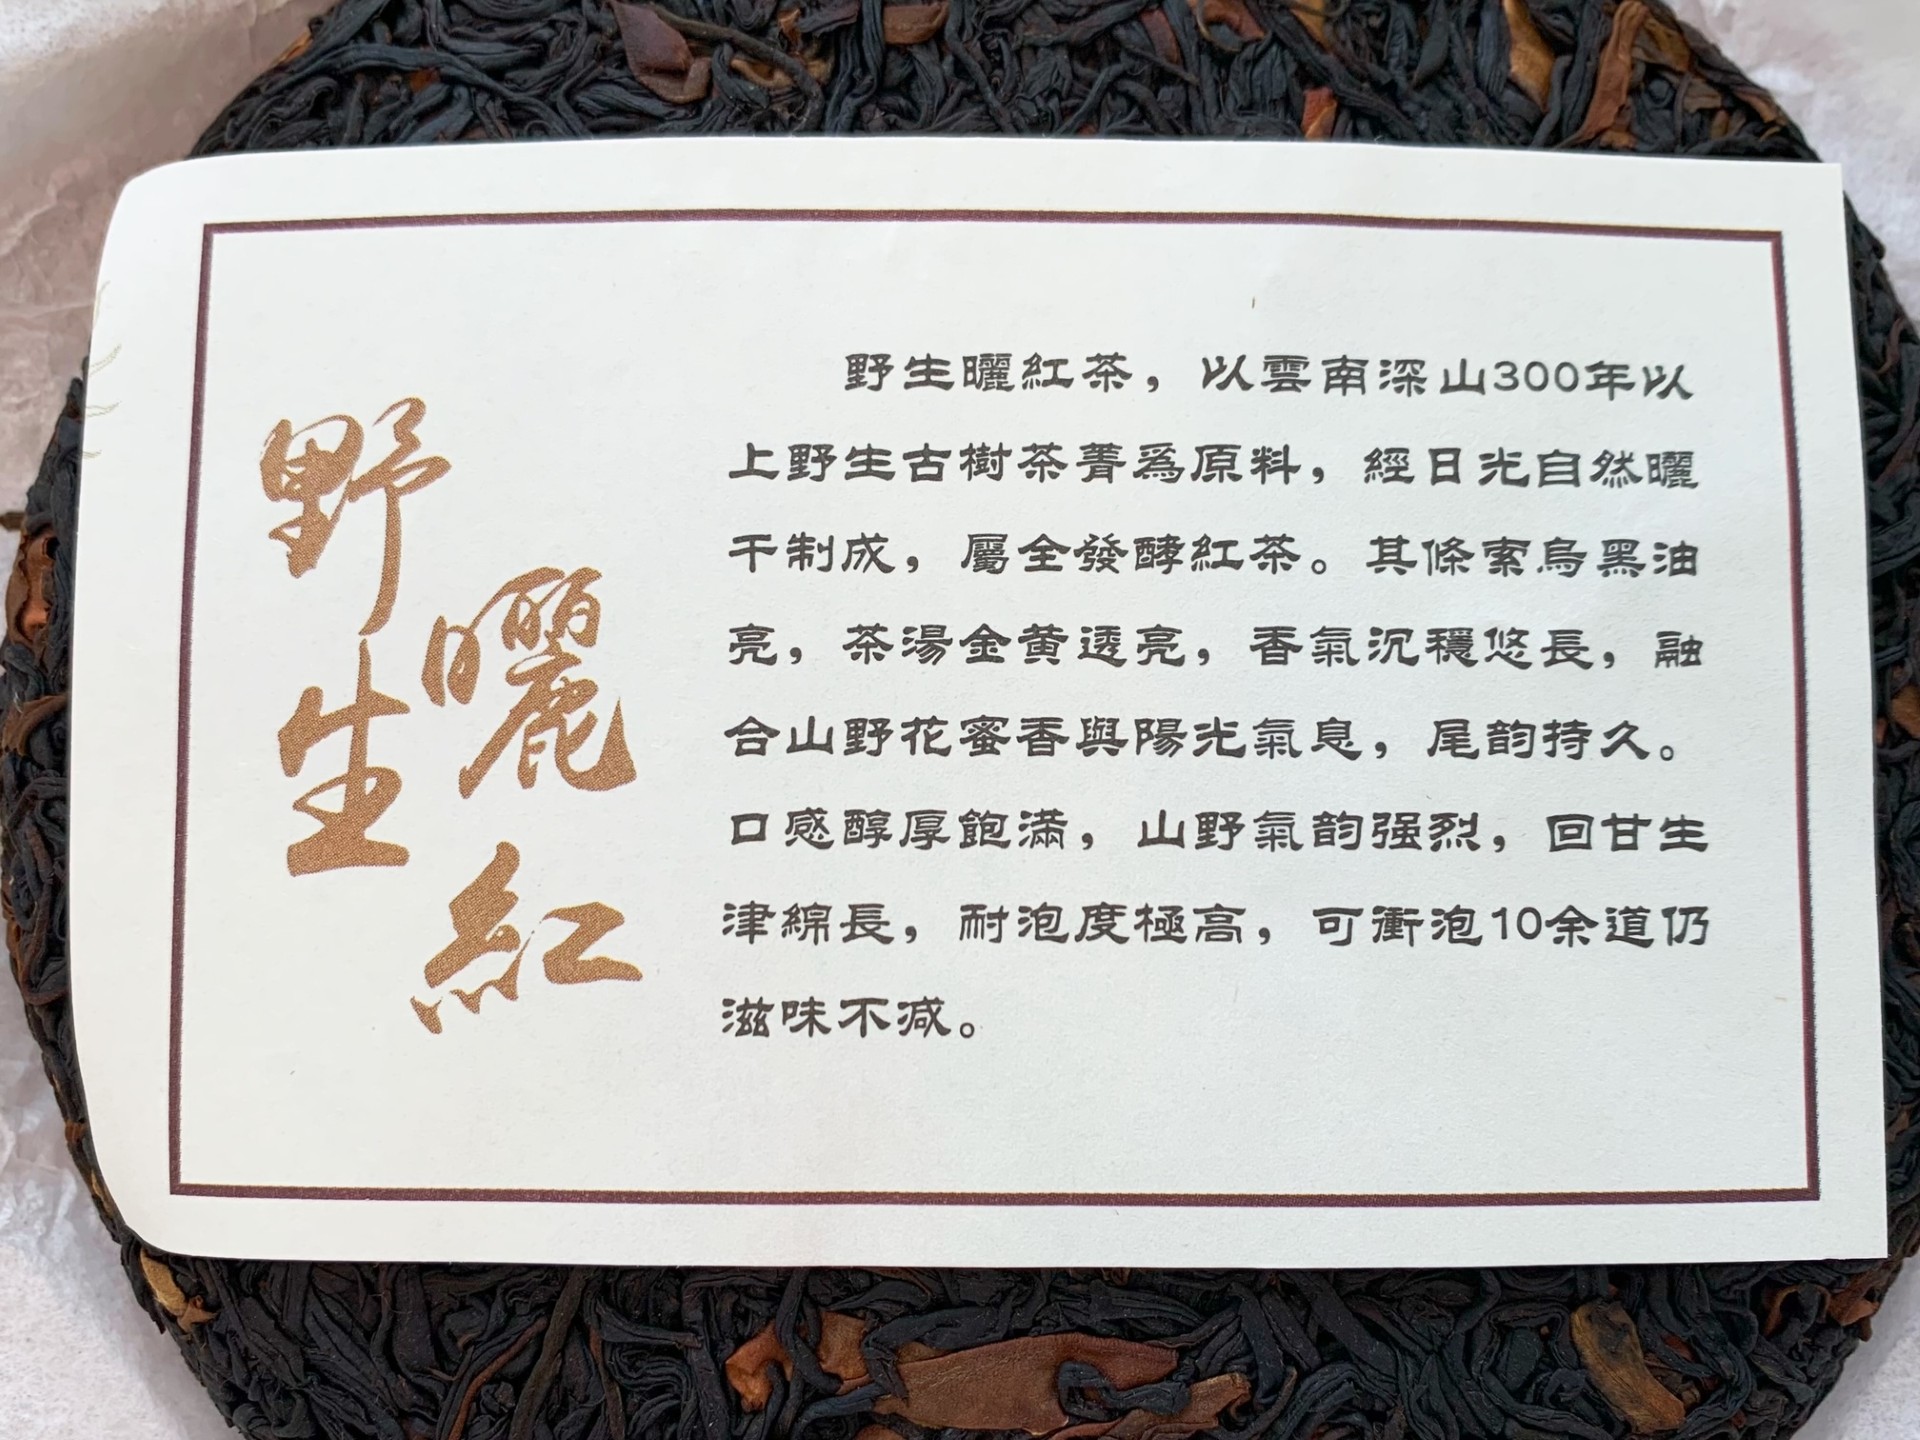 野生
曬紅
野生曬紅茶，以雲南深山300年以
上野生古樹茶菁爲原料，經日光自然曬
干制成，屬全發酵紅茶。其條索烏黑油
亮，茶湯金黄透亮，香氣沉穩悠長，融
合山野花蜜香與陽光氣息，尾韵持久。
口感醇厚飽滿，山野氣韵强烈，回甘生
津綿長，耐泡度極高，可衝泡10余道仍
滋味不减。